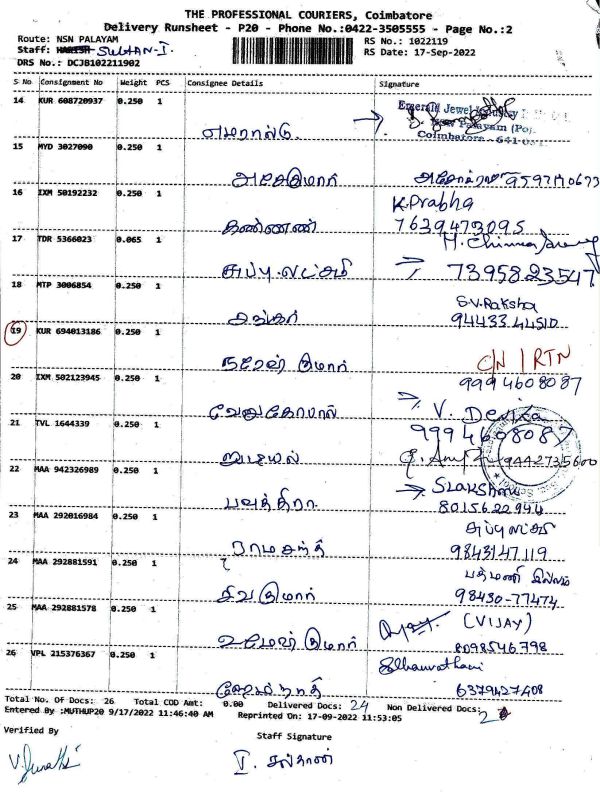 THE PROFESSIONAL COURIERS, Coimbatore
Delivery Runsheet - P20 - Phone No.:0422-3505555 - Page No.:2
Route: NSN PALAYAM RS No.: 1022119
Staff: SULTAN-I. RS Date: 17-Sep-2022
DRS No.: DCJB102211902
S No Consignment No Weight PCS Consignee Details Signature
14 KUR 608720937 0.250 1
Emerald Jewel Industry
Palayam (Po),
எமரால்டு. Coimbatore - 641-031
15 MYD 3027090 0.250 1
அசோகுமார்
16 IXM 50192232 0.250 1 K.Prabha
கண்ணன் 7639473095
17 TDR 5366023 0.065 1
சுப்புலட்சுமி 7395823547
18 MTP 3006854 0.250 1 S.V.Raksha
சங்கர் 94433 44510
19 KUR 694013186 0.250 1
நரேஷ் குமார் C/N / RTN
20 IXM 502123945 0.250 1 9994608087
வேணுகோபால் V. Devika
21 TVL 1644339 0.250 1 9994608087
9442735600
22 MAA 942326989 0.250 1
பவத்திரா 8015622944
23 MAA 292016984 0.250 1
9843147119
24 MAA 292881591 0.250 1 பத்மணி இல்லம்
சிவகுமார் 98430-77474
25 MAA 292881578 0.250 1 (VIJAY)
உமேஷ் குமார் 8098546798
26 VPL 215376367 0.250 1
6379427408
Total No. Of Docs: 26 Total COD Amt: 0.00 Delivered Docs: 24 Non Delivered Docs: 2
Entered By :MUTHUP20 9/17/2022 11:46:40 AM Reprinted On: 17-09-2022 11:53:05
Verified By Staff Signature
I. சுல்தான்